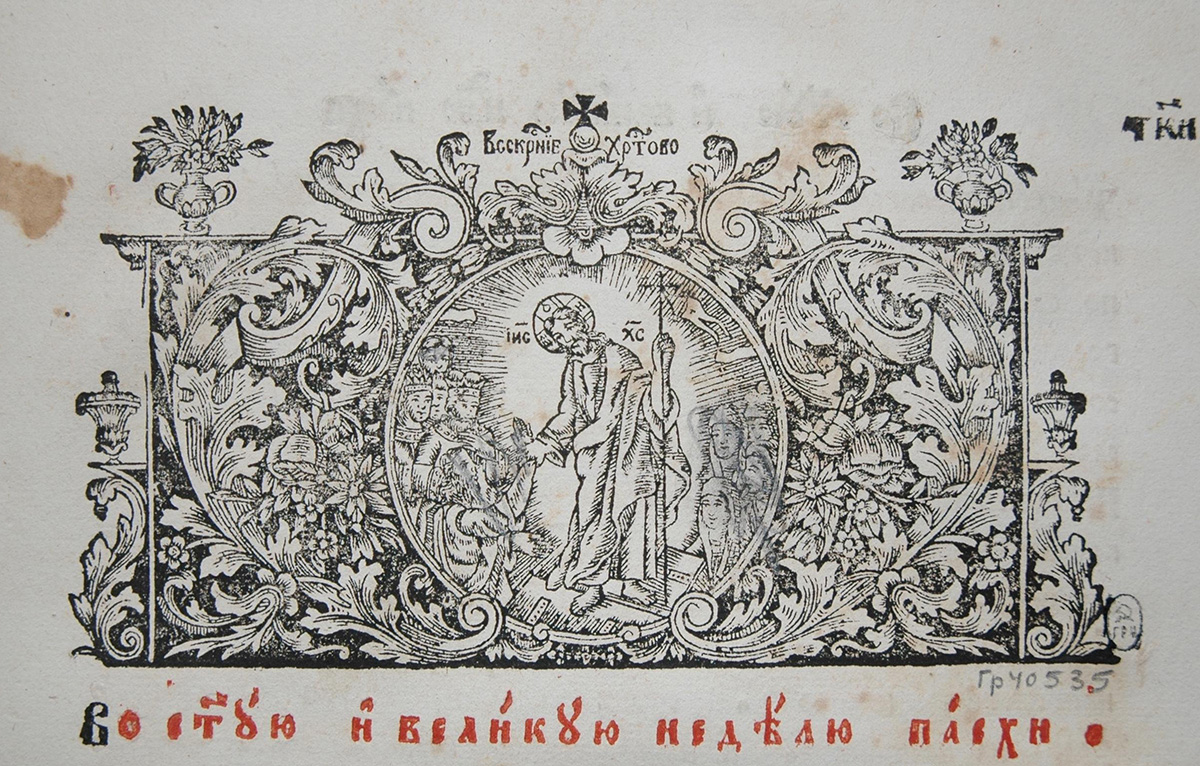 ткⷩ҇и
Воскрⷭ҇нїе Хрⷭ҇тово
Іи҃с Хс҃
Гр40535
Во ст҃ꙋ́ю и҆ вели́кꙋю недѣ́лю па́схи .